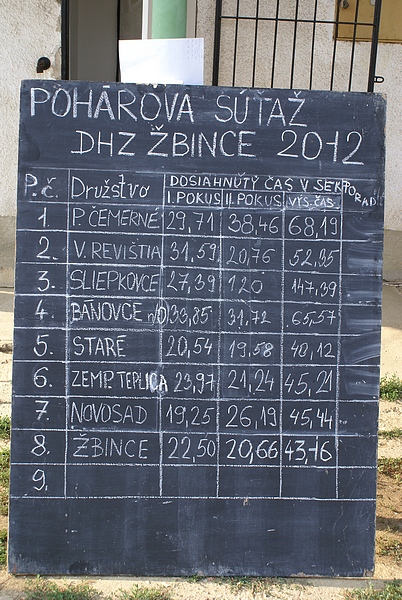 POHÁROVÁ SÚŤAŽ
DHZ ŽBINCE 2012
P.č. Družstvo DOSIAHNUTÝ ČAS V SEK. PORAD
I. POKUS II. POKUS VÝS. ČAS
1 P. ČEMERNÉ 29,71 38,46 68,19
2. V. REVIŠTIA 31,59 20,76 52,35
3. SLIEPKOVCE 27,39 120 147,39
4. BÁNOVCE n/O 33,85 31,72 65,57
5. STARÉ 20,54 19,58 40,12
6. ZEMP. TEPLICA 23,97 21,24 45,21
7. NOVOSAD 19,25 26,19 45,44
8. ŽBINCE 22,50 20,66 43,16
9.